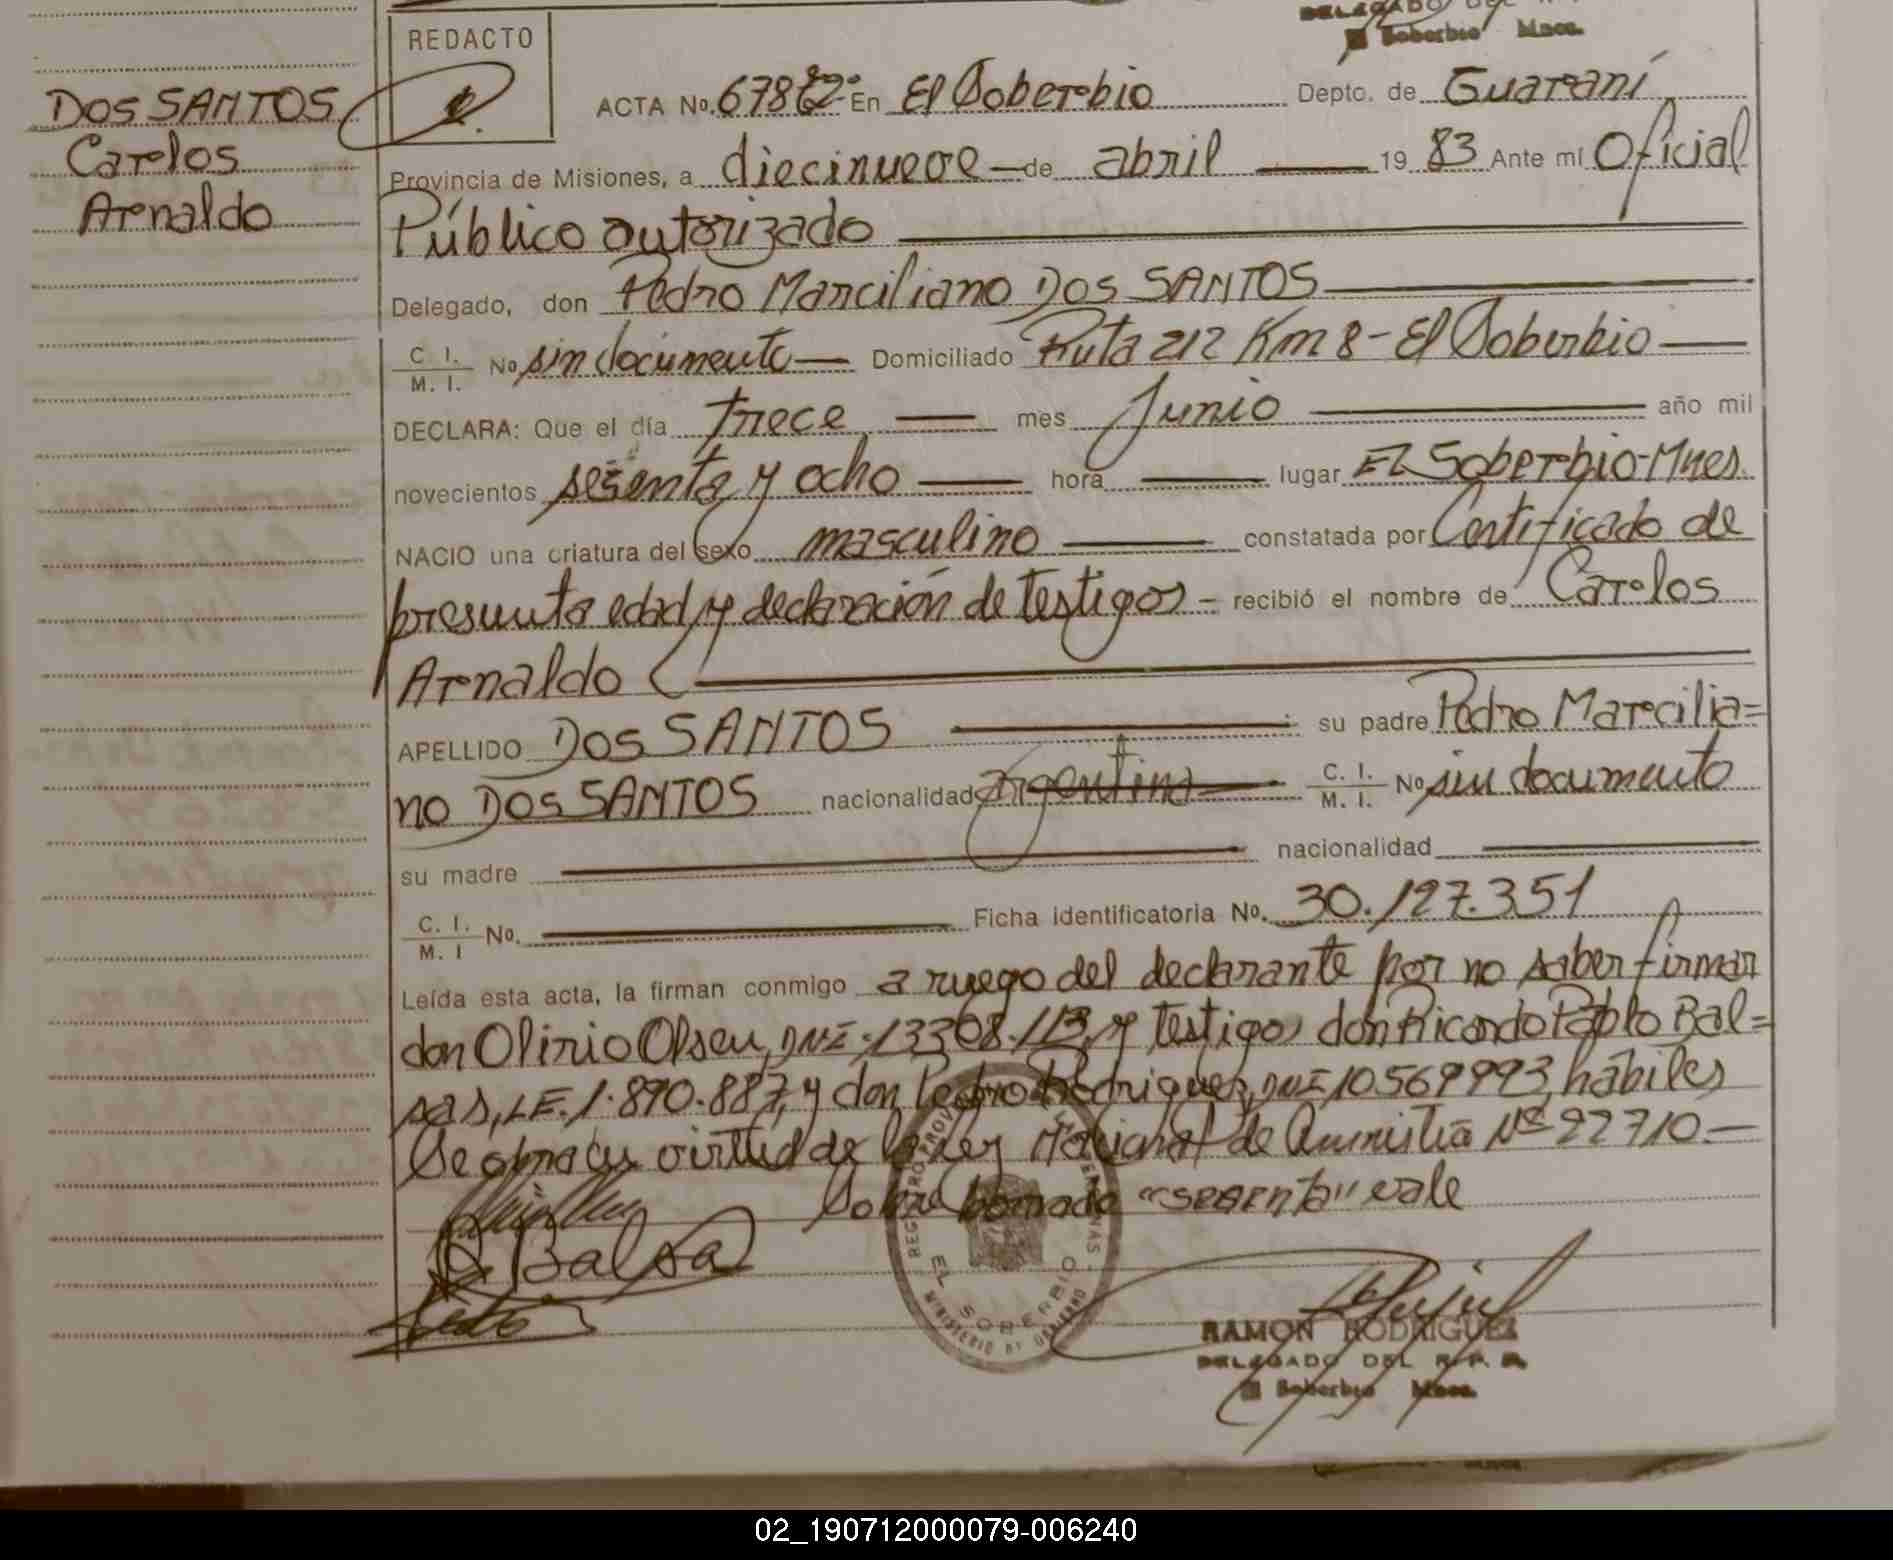 DELEGADO DEL R.
El Soberbio Mnes.
REDACTO
DOS SANTOS
Carlos
Arnaldo
ACTA No. 678 En El Soberbio Depto. de Guaraní
Provincia de Misiones, a diecinueve de abril 19 83 Ante mí Oficial
Público autorizado
Delegado, don Pedro Marciliano DOS SANTOS
C. I. M. I. No sin documento Domiciliado Ruta 212 Km 8 - El Soberbio
DECLARA: Que el día trece mes Junio año mil
novecientos sesenta y ocho hora lugar El Soberbio-Mnes.
NACIO una criatura del sexo masculino constatada por Certificado de
presunta edad y declaración de testigos - recibió el nombre de Carlos
Arnaldo
APELLIDO DOS SANTOS su padre Pedro Marcilia=
no DOS SANTOS nacionalidad argentina C. I. M. I. No sin documento
su madre nacionalidad
C. I. M. I No. Ficha identificatoria No. 30.127.351
Leída esta acta, la firman conmigo a ruego del declarante por no saber firmar
don Olirio Olsen, DNI. 13308.113, y testigos don Ricardo Pablo Bal=
sas, LE. 1.890.887, y don Pedro Rodriguez, DNI 10.569993, hábiles
Se obra en virtud de la Ley Nacional de Amnistía Nº 22710.-
Sobre borrado "sesenta" vale
R Balsa
REGISTRO PROV DE LAS PERSONAS - EL SOBERBIO MINISTERIO DE GOBIERNO
RAMON RODRIGUEZ
DELEGADO DEL R. P. P.
El Soberbio Mnes.
02_190712000079-006240